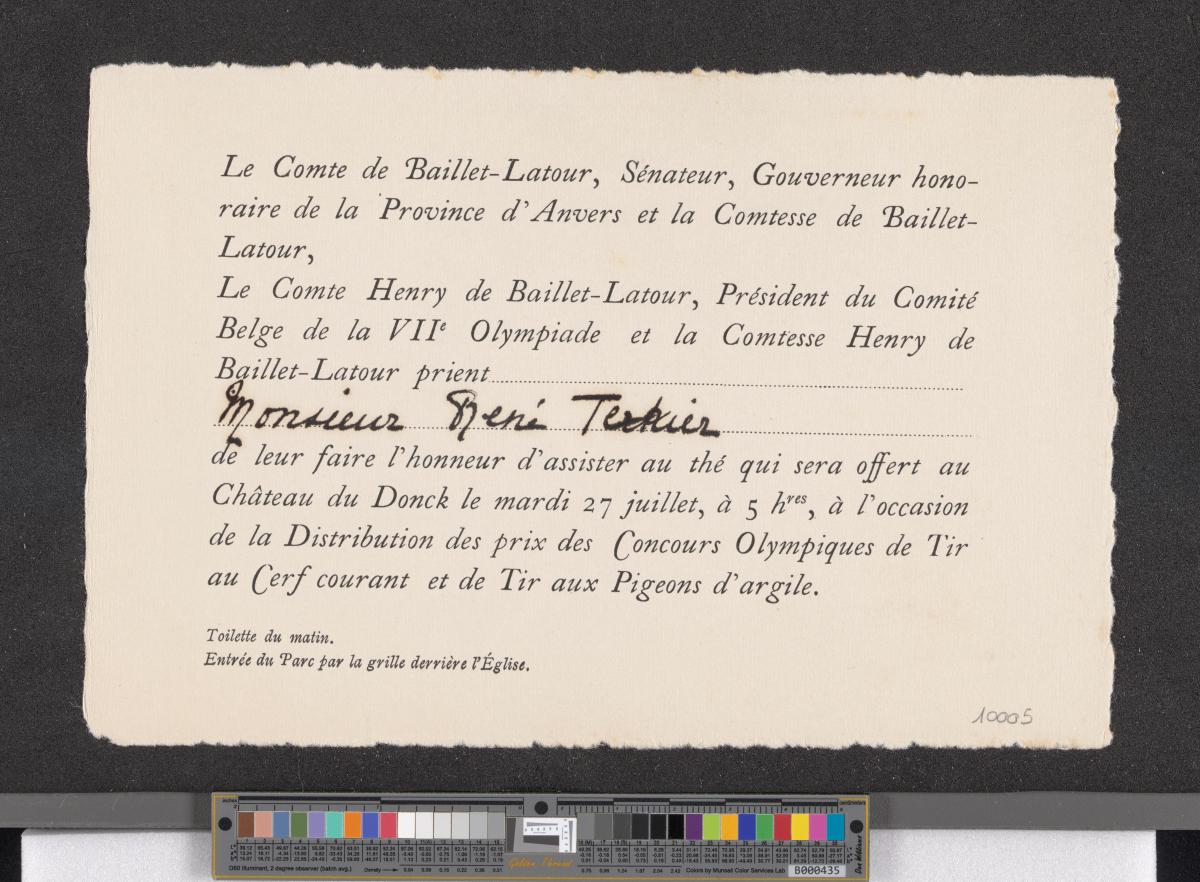 Le Comte de Baillet-Latour, Sénateur, Gouverneur hono-
raire de la Province d'Anvers et la Comtesse de Baillet-
Latour,
Le Comte Henry de Baillet-Latour, Président du Comité
Belge de la VIIe Olympiade et la Comtesse Henry de
Baillet-Latour prient
Monsieur René Terkier
de leur faire l'honneur d'assister au thé qui sera offert au
Château du Donck le mardi 27 juillet, à 5 hres, à l'occasion
de la Distribution des prix des Concours Olympiques de Tir
au Cerf courant et de Tir aux Pigeons d'argile.
Toilette du matin.
Entrée du Parc par la grille derrière l'Église.
10005
inches
centimeters
D50 Illuminant, 2 degree observer (batch avg.)
Density
Golden Thread
Colors by Munsell Color Services Lab
B000435